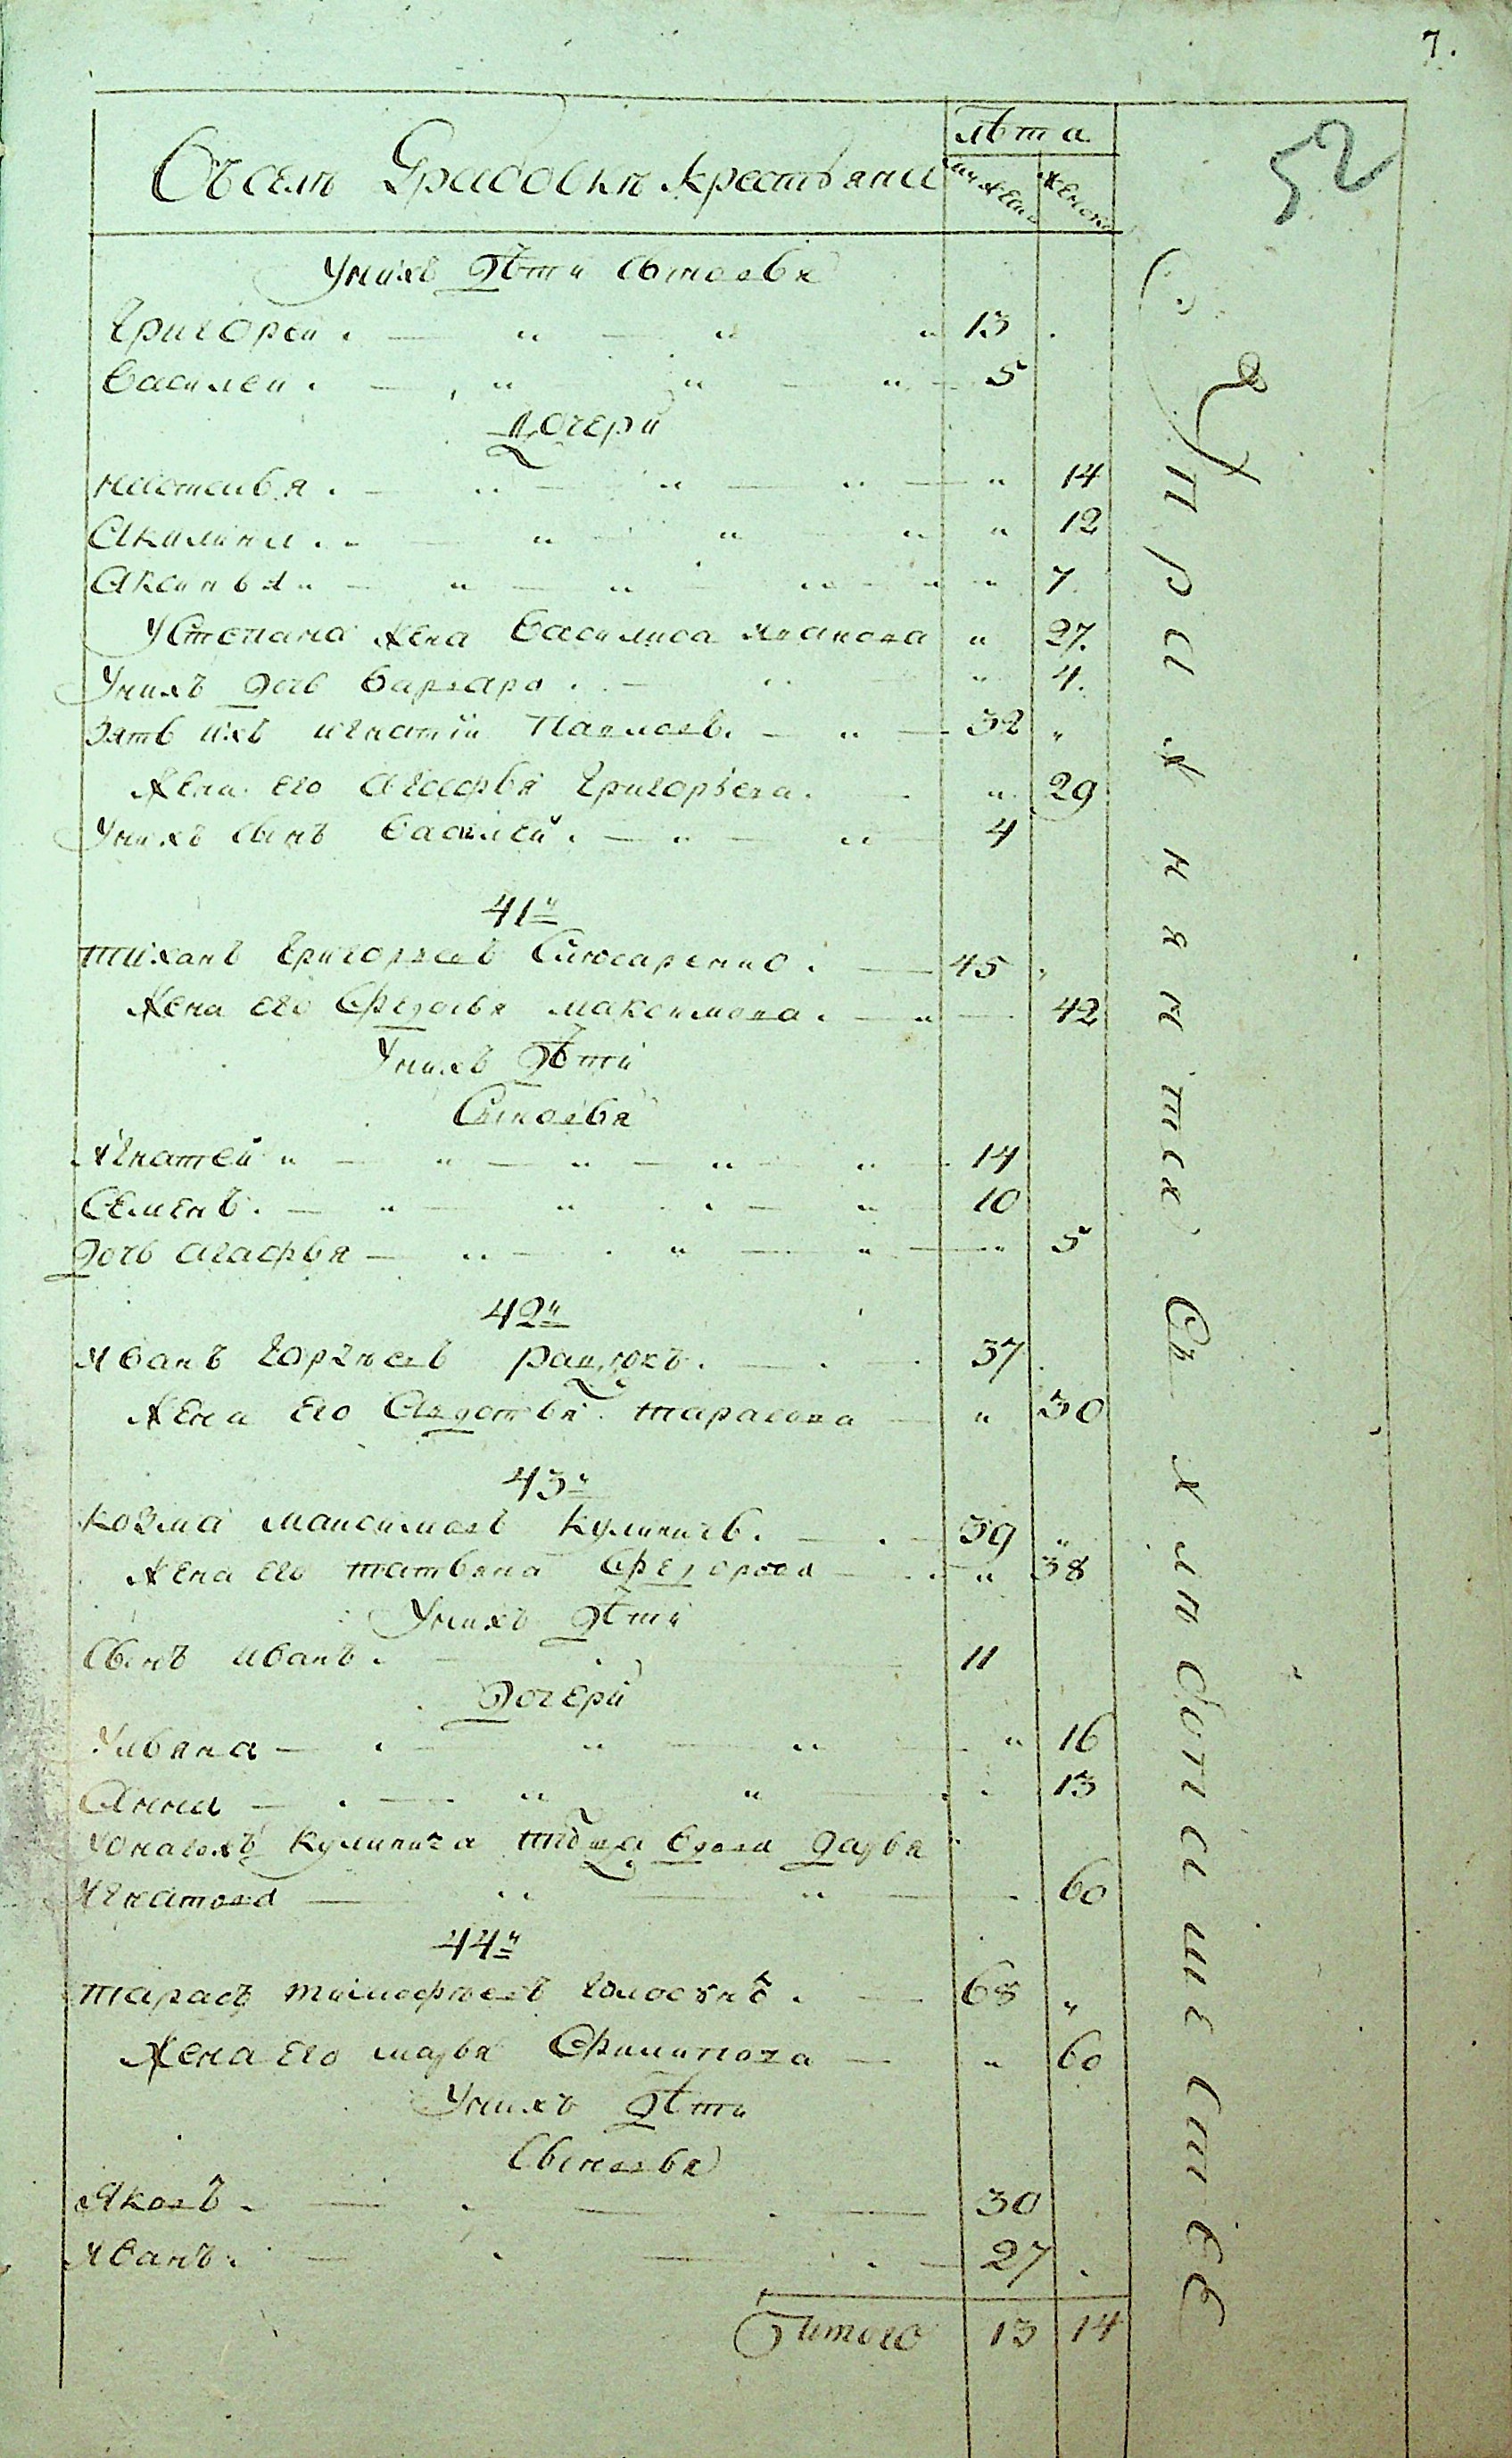 7.
52
Въ селѣ Градовкѣ крестьяне
лѣта
мужеск женск
У нихъ дѣти сыновья
Григорей 13
Василей 5
дочери
Настасья 14
Акилина 12
Аксинья 7
У Степана жена Василиса Иванова 27.
У нихъ дочь Варвара 4.
Зять ихъ Игнатій Павловъ 32
Жена его Агафья Григорьева 29
У нихъ сынъ Василей 4
41й
Тиханъ Григорьевъ Слюсаренко 45
Жена его Федосья Максимова 42
У нихъ дѣти
Сыновья
Игнатей 14
Семенъ 10
Дочь Агафья 5
42й
Иванъ Горднѣевъ 37
Жена его Авдотья Тарасова 30
43й
Козма Максимовъ Куликичь 39
Жена его Татьяна Федорова 38
У нихъ дѣти
Сынъ Иванъ 11
Дочери
Ульяна 16
Анна 13
Куликича тіоща вдова Дарья
Игнатова 60
44й
Тарасъ Тимофѣевъ 68
Жена его Марья Филипова 60
У нихъ дѣти
Сыновья
Яковъ 30
Иванъ 27
Итого 13 14